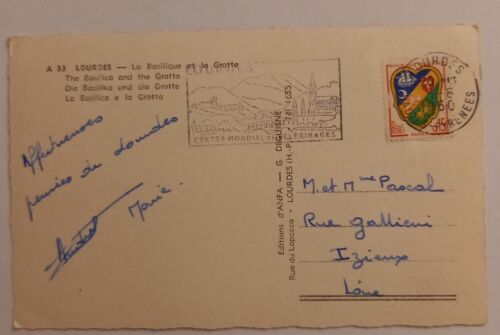 A 33 LOURDES — La Basilique et la Grotte
The Basilica and the Grotto
Die Basilika und die Grotte
La Basilica e la Grotta
LOURDES
CENTRE MONDIAL DE PÈLERINAGES
LOURDES
60
PYRENEES
Affectueuses
pensées de Lourdes
Marie.
Editions d'ANFA — G. DEGUISNE
Rue du Lapacca - LOURDES (H.-P.)
M. et Mme Pascal
Rue Gallieni
Izieux
Loire